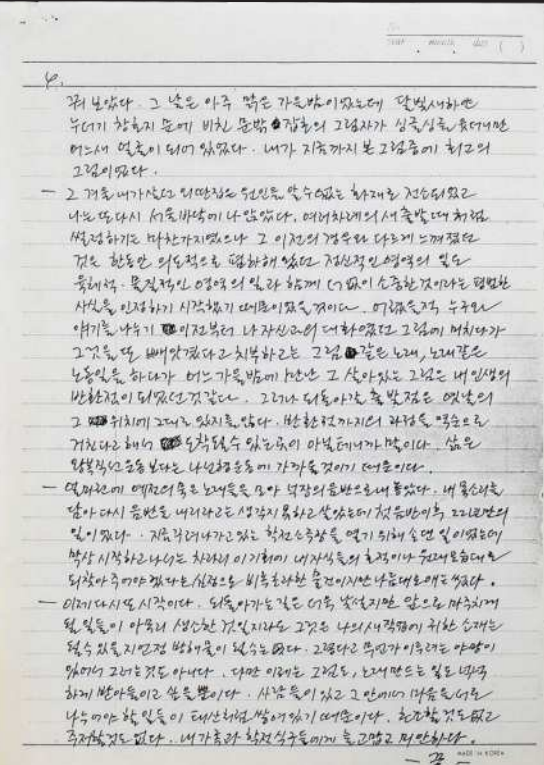 year month day ( )
4.
꿔 보았다. 그 날은 아주 맑은 가을밤이었는데 달빛새하얀
누더기 창호지 문에 비친 문밖 잡초의 그림자가 싱글싱글 웃더니만
어느새 얼굴이 되어 있었다. 내가 지금까지 본 그림중에 최고의
그림이었다.
— 그 겨울 내가살던 외딴집은 원인을 알 수 없는 화재로 전소되었고
나는 또다시 서울바닥에 나앉았다. 여러차례의 새 출발때처럼
썰렁하기는 마찬가지였으나 그 이전의 경우와 다르게 느껴졌던
것은 한동안 의도적으로 폄하해 왔던 정신적인 영역의 일도
육체적·물질적인 영역의 일과 함께 더없이 소중한것이라는 평범한
사실을 인정하기 시작했기 때문이었을 것이다. 어렸을적 누구와
얘기를 나누기 이전부터 나 자신과의 대화였던 그림에 미치다가
그것을 또 빼앗겼다고 치부하고는 그림같은 노래, 노래같은
노동일을 하다가 어느 가을밤에 만난 그 살아있는 그림은 내 인생의
반환점이 되었던것 같다. 그러나 되돌아갈 출발점은 옛날의
그 위치에 그대로 있지를 않다. 반환점까지의 과정을 역순으로
거친다고 해서 도착될수 있는곳이 아닐테니까 말이다. 삶은
왕복직선운동 보다는 나선형운동에 가까울것이기 때문이다.
— 얼마전에 예전의 묵은 노래들을 모아 넉장의 음반으로 내놓았다. 내 목소리를
담아 다시 음반을 내리라고는 생각지 못하고 살았는데 첫음반이후 22년만의
일이었다. 지금 꾸려나가고있는 학전소극장을 열기 위해 손댄 일이었는데
막상 시작하고나서는 차라리 이 기회에 내 자식들의 호적이나 원래모습대로
되찾아 주어야 겠다는 심정으로 비록 초라한 물건이지만 나름대로 애는 썼다.
— 이제 다시 또 시작이다. 되돌아가는 길은 더욱 낯설지만 앞으로 마주치게
될 일들이 아무리 생소한 것일지라도 그것은 나의 새작업에 귀한 소재는
될수 있을지언정 방해물이 될수는 없다. 그렇다고 무언가 이루려는 야망이
있어서 그러는 것도 아니다. 다만 이제는 그림도, 노래 만드는 일도 넉넉
하게 받아들이고 싶을 뿐이다. 사람들이 있고 그 안에서 마음을 서로
나누어야 할 일들이 태산처럼 쌓여 있기 때문이다. 초조할 것도 없고
주저할것도 없다. 내 가족과 학전식구들에게 늘 고맙고 미안하다.
— 끝 —
MADE IN KOREA